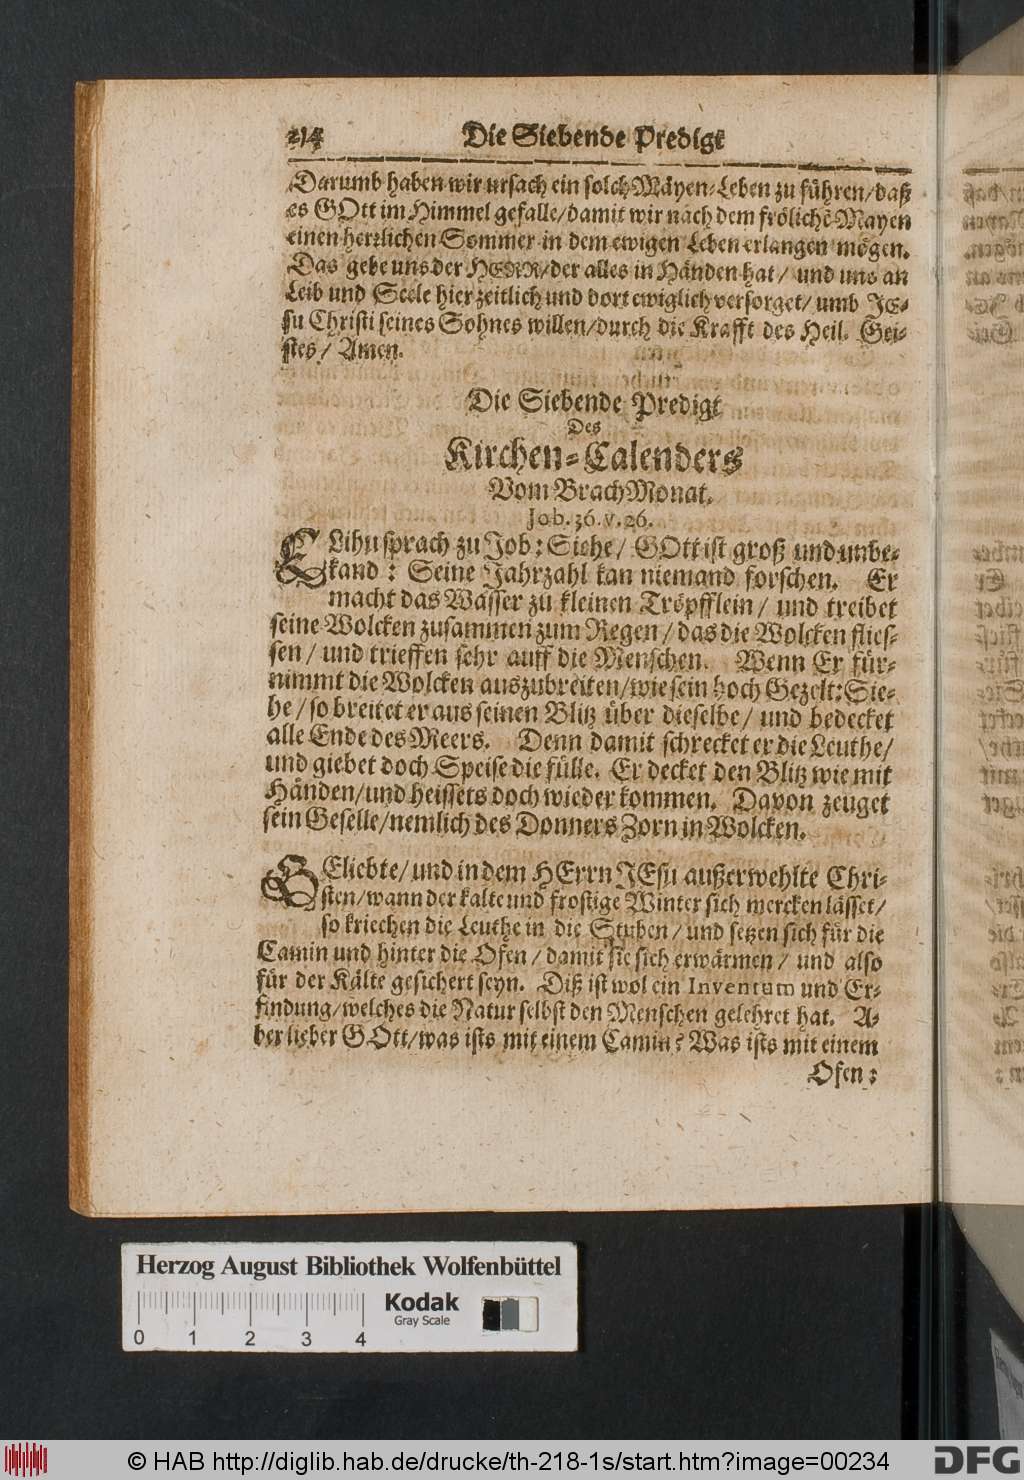 214 Die Siebende Predigt
Darumb haben wir ursach ein solch Mäyen-Leben zu führen/ daß
es GOtt im Himmel gefalle/ damit wir nach dem frölichē Mayen
einen herrlichen Sommer in dem ewigen Leben erlangen mögen.
Das gebe uns der HERR/ der alles in Händen hat/ und uns an
Leib und Seele hier zeitlich und dort ewiglich versorget/ umb JE-
su Christi seines Sohnes willen/ durch die Krafft des Heil. Gei-
stes/ Amen.
Die Siebende Predigt
Des
Kirchen-Calenders
Vom BrachMonat.
Job. 36. v. 26.
ELihu sprach zu Job: Siehe/ GOtt ist groß und unbe-
kand: Seine Jahrzahl kan niemand forschen. Er
macht das Wasser zu kleinen Tröpfflein/ und treibet
seine Wolcken zusammen zum Regen/ das die Wolcken flies-
sen/ und trieffen sehr auff die Menschen. Wenn Er für-
nimmt die Wolcken auszubreiten/ wie sein hoch Gezelt: Sie-
he/ so breitet er aus seinen Blitz über dieselbe/ und bedecket
alle Ende des Meers. Denn damit schrecket er die Leuthe/
und giebet doch Speise die fülle. Er decket den Blitz wie mit
Händen/ und heissets doch wieder kommen. Davon zeuget
sein Geselle/ nemlich des Donners Zorn in Wolcken.
GEliebte/ und in dem HErrn JEsu außerwehlte Chri-
sten/ wann der kalte und frostige Winter sich mercken lässet/
so kriechen die Leuthe in die Stuben/ und setzen sich für die
Camin und hinter die Ofen/ damit sie sich erwärmen/ und also
für der Kälte gesichert seyn. Diß ist wol ein Inventum und Er-
findung/ welches die Natur selbst den Menschen gelehret hat. A-
ber lieber GOtt/ was ists mit einem Camin? Was ists mit einem
Ofen:
Herzog August Bibliothek Wolfenbüttel
Kodak
Gray Scale
0 1 2 3 4
© HAB http://diglib.hab.de/drucke/th-218-1s/start.htm?image=00234
DFG